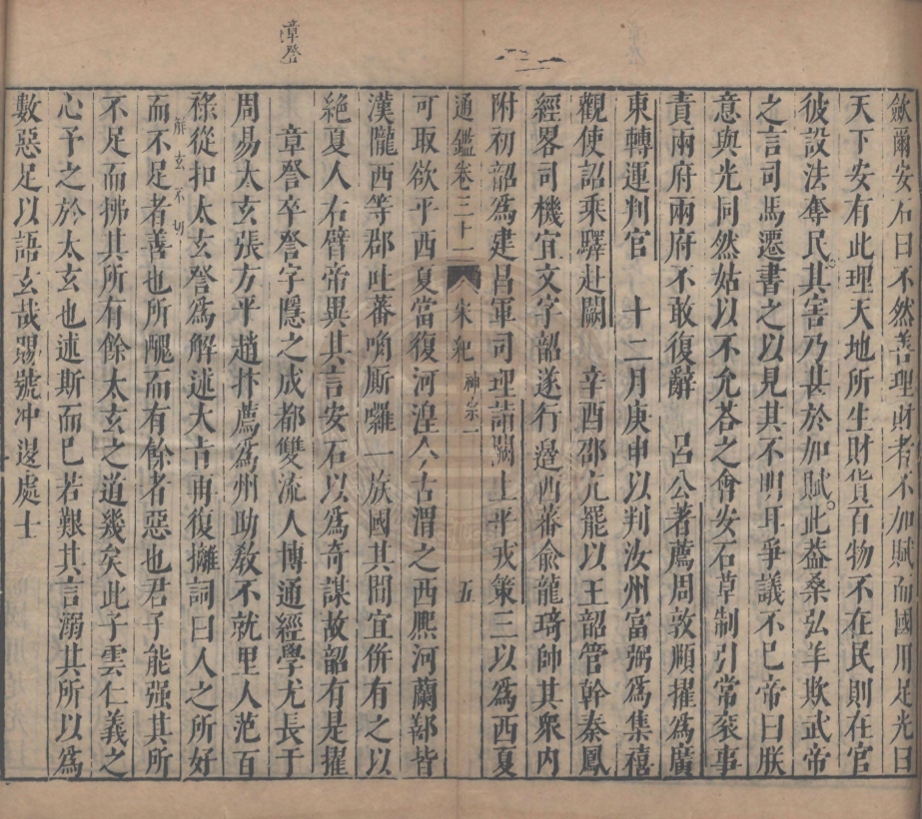 歛爾安石曰不然善理財者不加賦而國用足光曰
天下安有此理天地所生財貨百物不在民則在官
彼設法奪民其害乃甚於加賦此葢桑弘羊欺武帝
之言司馬遷書之以見其不明耳爭議不已帝曰朕
意與光同然姑以不允荅之會安石草制引常衮事
責兩府兩府不敢復辭 呂公著薦周敦頤擢爲廣
東轉運判官 十二月庚申以判汝州富弼爲集禧
觀使詔乘驛赴闕 辛酉邵亢罷以王韶管幹秦鳳
經畧司機宜文字韶遂行邊西蕃俞龍琦帥其衆內
附初韶爲建昌軍司理詣闕上平戎策三以爲西夏
通鑑卷三十一 宋紀 神宗一 五
可取欲平西夏當復河湟人古渭之西熈河蘭鄯皆
漢隴西等郡吐蕃唃厮囉一族國其間宜併有之以
絶夏人右臂帝異其言安石以爲奇謀故韶有是擢
章詧卒詧字隱之成都雙流人博通經學尤長于
周易太玄張方平趙抃薦爲州助敎不就里人范百
祿從扣太玄詧爲解述大旨再復攡詞曰人之所好
而不足者善也所醜而有餘者惡也君子能强其所
不足而拂其所有餘太玄之道幾矣此子雲仁義之
心予之於太玄也述斯而已若艱其言溺其所以爲
數惡足以語玄哉賜號冲逯處士
章詧
解玄不切